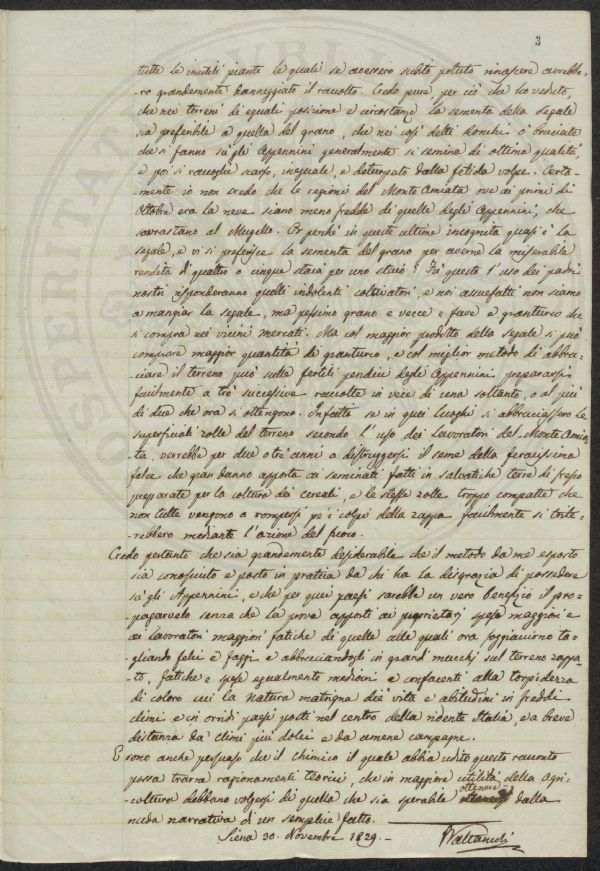 3
tutte le inutili piante le quali se avessero subito potuto rinascere avrebbe-
-ro grandemente danneggiato il raccolto. Credo pure, per ciò che ho veduto,
che nei terreni di eguali posizione e circostanze la sementa della segale
sia preferibile a quella del grano, che nei così detti Ronchi o bruciate
che si fanno su gli Appennini generalmente si semina di ottima qualità,
e poi si raccoglie scarso, ineguale, e deturpato dalla fetida volpe. Certa-
-mente io non credo che le regioni del Monte Amiata ove ai primi di
Ottobre era la neve siano meno fredde di quelle degli Appennini, che
sovrastano al Mugello. Or perchè in queste ultime incognita quasi è la
segale, e vi si preferisce la sementa del grano per averne la miserabile
rendita di quattro o cinque staia per uno staio? Fù questo l'uso dei padri
nostri risponderanno quelli indolenti coltivatori, e noi assuefatti non siamo
a mangiar la segale, ma pessimo grano e vecce e fave e granturco che
si compra nei vicini mercati. Ma col maggior prodotto della segale si può
comprare maggior quantità di granturco, e col miglior metodo di abbru-
ciare il terreno può sulle fertili pendici degli Appennini prepararsi
facilmente a tre successive raccolte in vece di una soltanto, o al più
di due che ora si ottengono. Infatti se in quei luoghi si abbruciassero le
superficiali zolle del terreno secondo l'uso dei lavoratori del Monte Amia-
ta, verrebbe per due o tre anni a distruggersi il seme della feracissima
felce che gran danno apporta ai seminati fatti in salvatiche terre di fresco
preparate per la coltura dei cereali, e le stesse zolle troppo compatte che
non tutte vengono a rompersi pe' i colpi della zappa facilmente si trite-
-rebbero mediante l'azione del fuoco.
Credo pertanto che sia grandemente desiderabile che il metodo da me esposto
sia conosciuto e posto in pratica da chi ha la disgrazia di possedere
su gli Appennini, e che per quei paesi sarebbe un vero benefizio il pro-
-pagarvelo senza che la prova apporti ai proprietarj spese maggiori e
ai lavoratori maggiori fatiche di quelle alle quali ora soggiacciono ta-
-gliando felci e faggi e abbruciandogli in grandi mucchj sul terreno zappa-
to, fatiche e spese egualmente mediocri e confacenti alla torpidezza
di coloro cui la Natura matrigna diè vita e abitudini in freddi
climi e in orridi paesi posti nel centro della ridente Italia, e a breve
distanza da climi più dolci e da amene campagne.
E sono anche persuaso che il Chimico il quale abbia udito questo racconto
possa trarne ragionamenti teorici, che in maggiore utilità della Agri-
-coltura debbano volgersi di quella che sia sperabile ottenere dalla
nuda narrativa di un semplice fatto.
Siena 30. Novembre 1829.